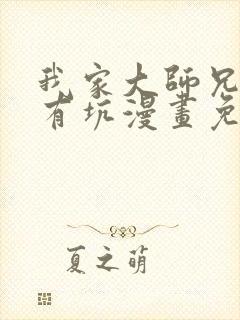 我家大師兄
有坑漫畫免
夏之萌